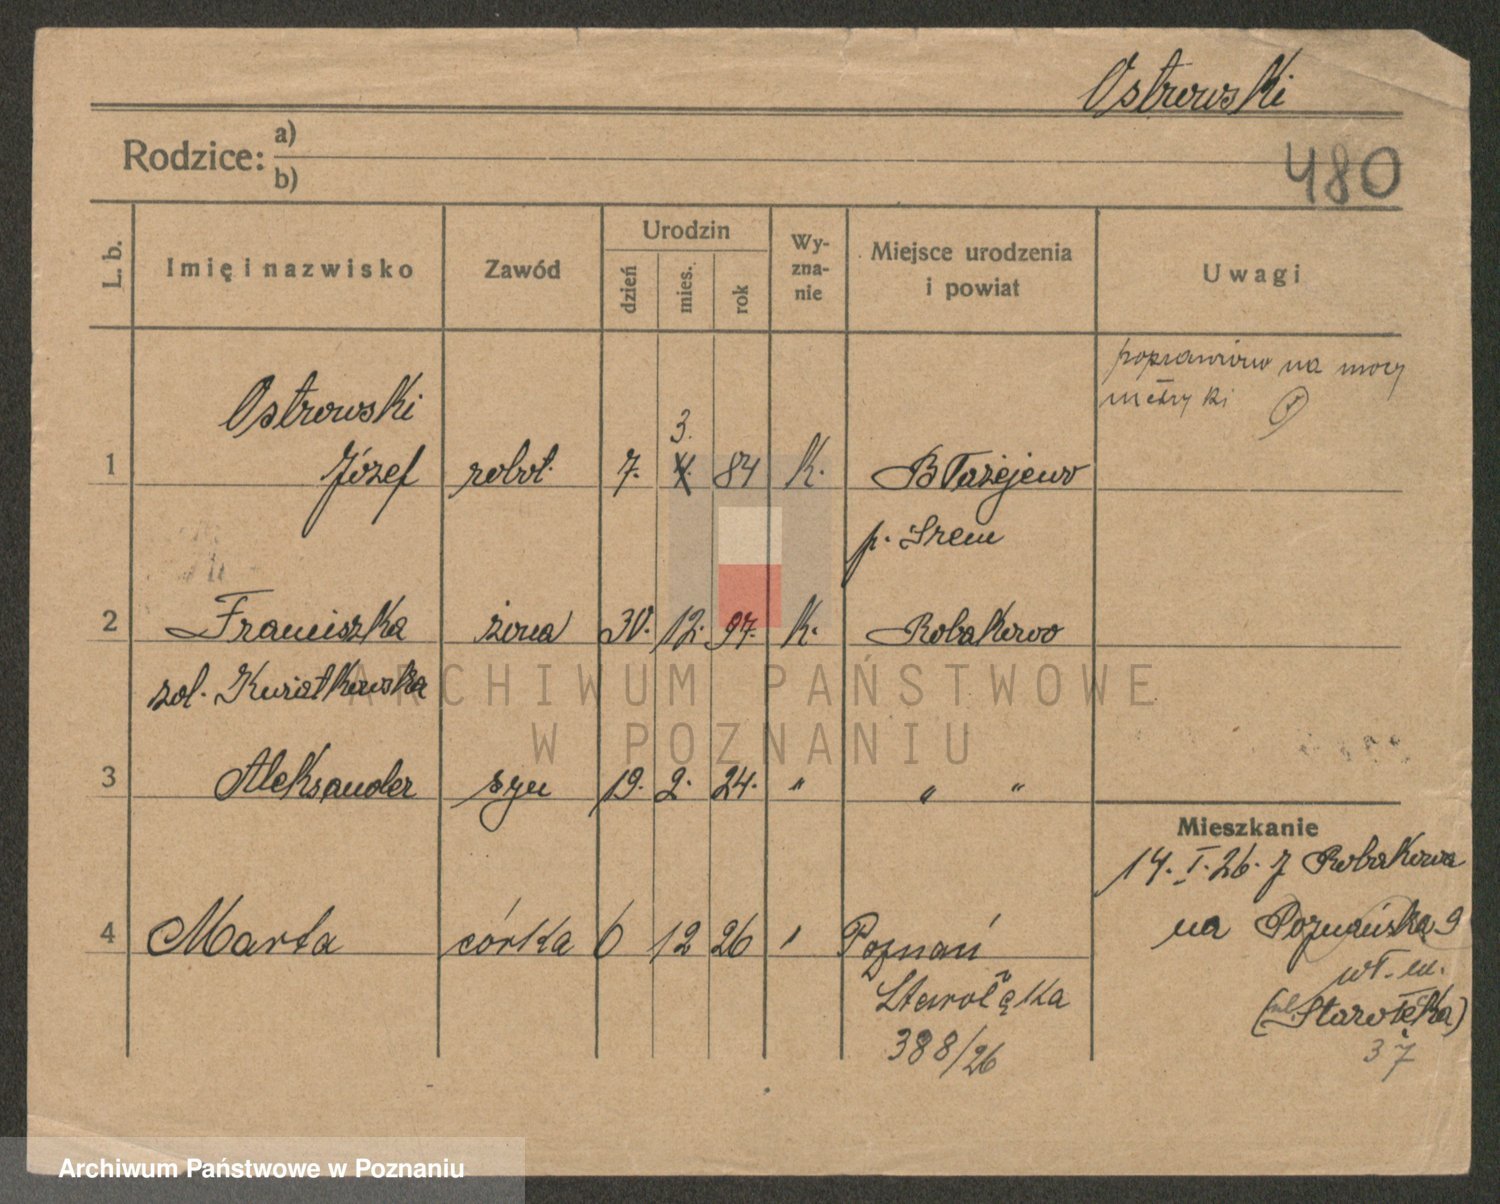 Ostrowski
Rodzice: a)
b)
480
L. b. Imię i nazwisko Zawód Urodzin dzień mies. rok Wy-zna-nie Miejsce urodzenia i powiat Uwagi
poprawiono na mocy
metryki
Ostrowski
3.
1 Józef robot. 7. 4. 84 K. Błażejewo
p. Śrem
2 Franciszka żona 30. 12. 97. K. Robakowo
zd. Kwiatkowska
ARCHIWUM PAŃSTWOWE
W POZNANIU
3 Aleksander syn 19. 2. 24. " " "
Mieszkanie
14. I. 26. z Robakowa
4 Marta córka 6 12 26 " Poznań
na Poznańska 9
wł. m.
Starołęka
(ul. Starołęka)
388/26
37
Archiwum Państwowe w Poznaniu